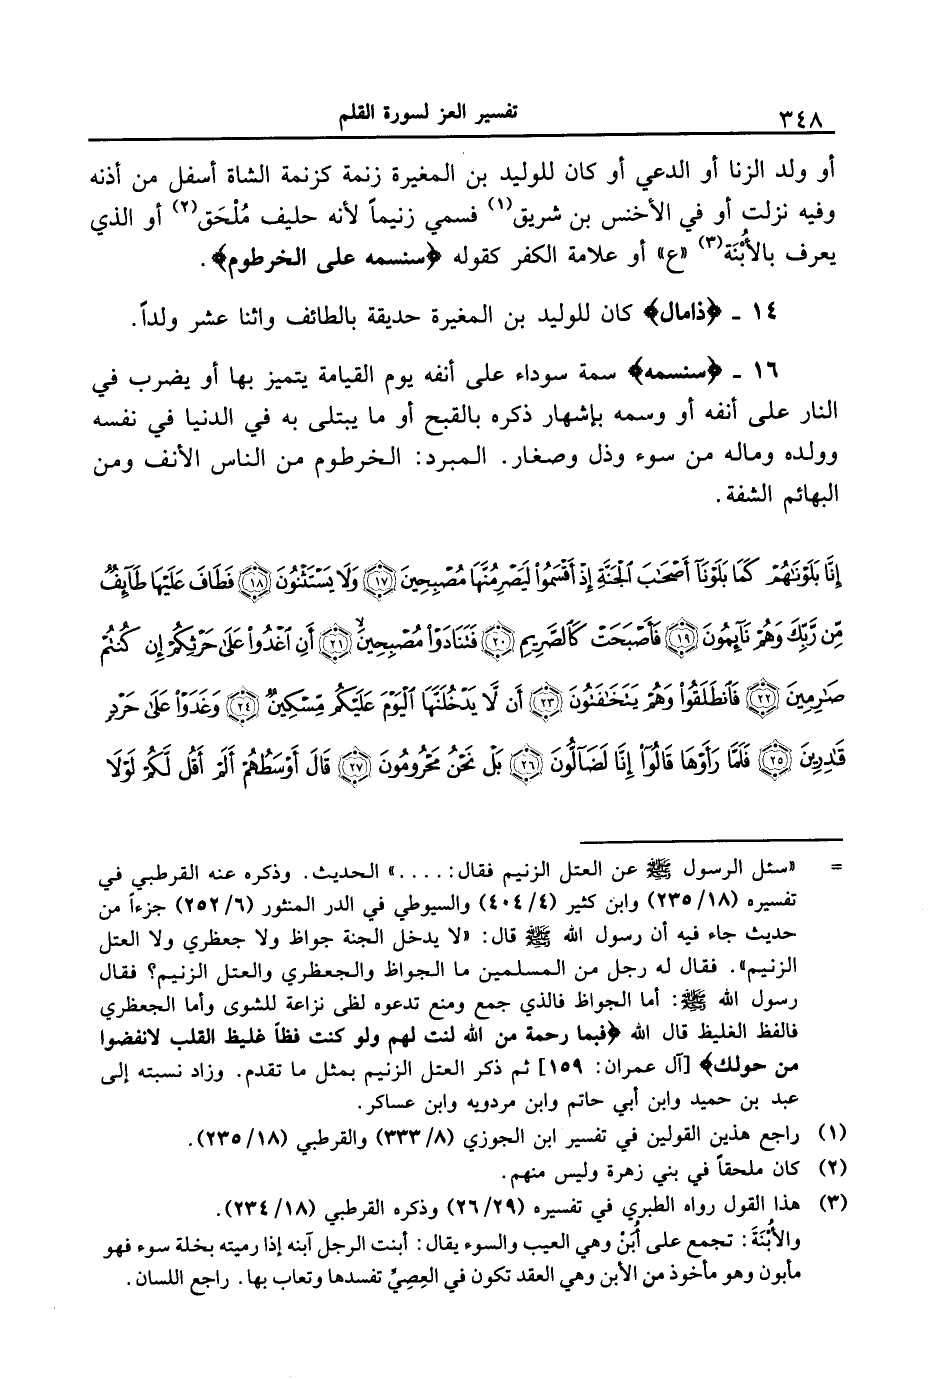 ٣٤٨
تفسير العز لسورة القلم
أو ولد الزنا أو الدعي أو كان للوليد بن المغيرة زنمة كزنمة الشاة أسفل من أذنه
وفيه نزلت أو في الأخنس بن شريق(١) فسمي زنيماً لأنه حليف مُلْحَق(٢) أو الذي
يعرف بالأُبْنَة(٣) «ع» أو علامة الكفر كقوله ﴿سنسمه على الخرطوم﴾.
١٤ ـ ﴿ذامال﴾ كان للوليد بن المغيرة حديقة بالطائف واثنا عشر ولداً.
١٦ ـ ﴿سنسمه﴾ سمة سوداء على أنفه يوم القيامة يتميز بها أو يضرب في
النار على أنفه أو وسمه بإشهار ذكره بالقبح أو ما يبتلى به في الدنيا في نفسه
وولده وماله من سوء وذل وصغار. المبرد: الخرطوم من الناس الأنف ومن
البهائم الشفة.
إِنَّا بَلَوْنَاهُمْ كَمَا بَلَوْنَا أَصْحَابَ الْجَنَّةِ إِذْ أَقْسَمُوا لَيَصْرِمُنَّهَا مُصْبِحِينَ ١٧ وَلَا يَسْتَثْنُونَ ١٨ فَطَافَ عَلَيْهَا طَائِفٌ
مِّن رَّبِّكَ وَهُمْ نَائِمُونَ ١٩ فَأَصْبَحَتْ كَالصَّرِيمِ ٢٠ فَتَنَادَوْا مُصْبِحِينَ ٢١ أَنِ اغْدُوا عَلَى حَرْثِكُمْ إِن كُنتُمْ
صَارِمِينَ ٢٢ فَانطَلَقُوا وَهُمْ يَتَخَافَتُونَ ٢٣ أَن لَّا يَدْخُلَنَّهَا الْيَوْمَ عَلَيْكُم مِّسْكِينٌ ٢٤ وَغَدَوْا عَلَى حَرْدٍ
قَادِرِينَ ٢٥ فَلَمَّا رَأَوْهَا قَالُوا إِنَّا لَضَالُّونَ ٢٦ بَلْ نَحْنُ مَحْرُومُونَ ٢٧ قَالَ أَوْسَطُهُمْ أَلَمْ أَقُل لَّكُمْ لَوْلَا
= «سئل الرسول ﷺ عن العتل الزنيم فقال: ....» الحديث. وذكره عنه القرطبي في
تفسيره (١٨/ ٢٣٥) وابن كثير (٤/ ٤٠٤) والسيوطي في الدر المنثور (٦/ ٢٥٢) جزءاً من
حديث جاء فيه أن رسول الله ﷺ قال: «لا يدخل الجنة جواظ ولا جعظري ولا العتل
الزنيم». فقال له رجل من المسلمين ما الجواظ والجعظري والعتل الزنيم؟ فقال
رسول الله ﷺ: أما الجواظ فالذي جمع ومنع تدعوه لظى نزاعة للشوى وأما الجعظري
فالفظ الغليظ قال الله ﴿فبما رحمة من الله لنت لهم ولو كنت فظاً غليظ القلب لانفضوا
من حولك﴾ [آل عمران: ١٥٩] ثم ذكر العتل الزنيم بمثل ما تقدم. وزاد نسبته إلى
عبد بن حميد وابن أبي حاتم وابن مردويه وابن عساكر.
(١) راجع هذين القولين في تفسير ابن الجوزي (٨/ ٣٣٣) والقرطبي (١٨/ ٢٣٥).
(٢) كان ملحقاً في بني زهرة وليس منهم.
(٣) هذا القول رواه الطبري في تفسيره (٢٩/ ٢٦) وذكره القرطبي (١٨/ ٢٣٤).
والأُبْنَةَ: تجمع على أُبَنْ وهي العيب والسوء يقال: أبنت الرجل آبنه إذا رميته بخلة سوء فهو
مأبون وهو مأخوذ من الأبن وهي العقد تكون في العِصِيِّ تفسدها وتعاب بها. راجع اللسان.